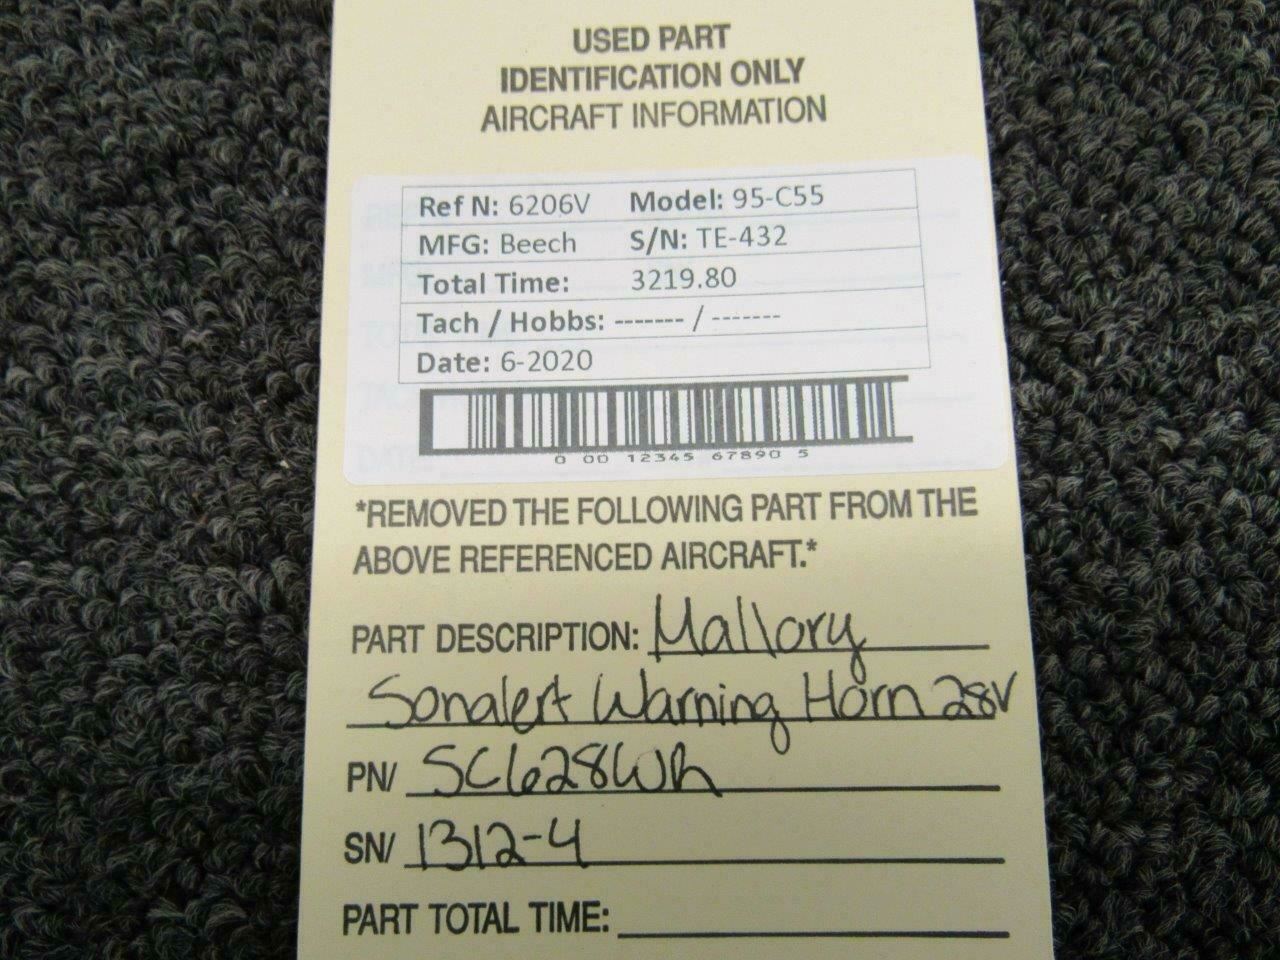 USED PART
IDENTIFICATION ONLY
AIRCRAFT INFORMATION
Ref N: 6206V Model: 95-C55
MFG: Beech S/N: TE-432
Total Time: 3219.80
Tach / Hobbs: ------- / -------
Date: 6-2020
0 00 12345 67890 5
*REMOVED THE FOLLOWING PART FROM THE
ABOVE REFERENCED AIRCRAFT.*
PART DESCRIPTION: Mallory
Sonalert Warning Horn 28V
PN/ SC628WR
SN/ 1312-4
PART TOTAL TIME: